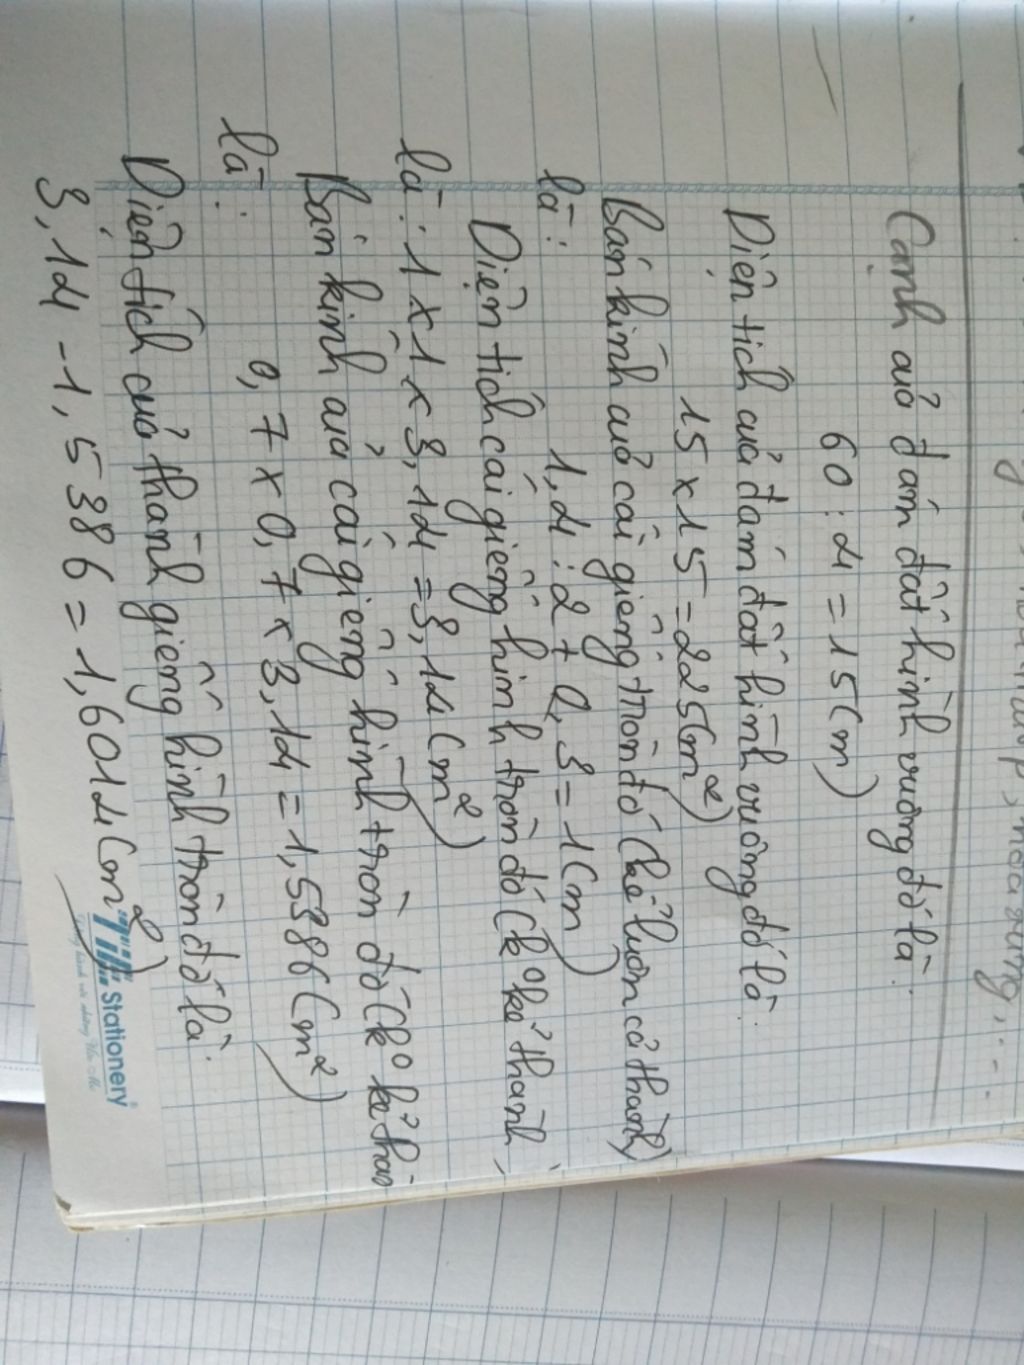 Cạnh của đám đất hình vuông đó là:
60 : 4 = 15 (m)
Diện tích của đám đất hình vuông đó là:
15 x 15 = 225 (m²)
Bán kính của cái giếng tròn đó (kể luôn cả thành)
là: 1,4 : 2 + 0,3 = 1 (m)
Diện tích cái giếng hình tròn đó (k° kể thành)
là: 1 x 1 x 3,14 = 3,14 (m²)
Bán kính của cái giếng hình tròn đó (k° kể thàn
là: 0,7 x 0,7 x 3,14 = 1,5386 (m²)
Diện tích của thành giếng hình tròn đó là:
3,14 - 1,5386 = 1,6014 (m²)
Stationery